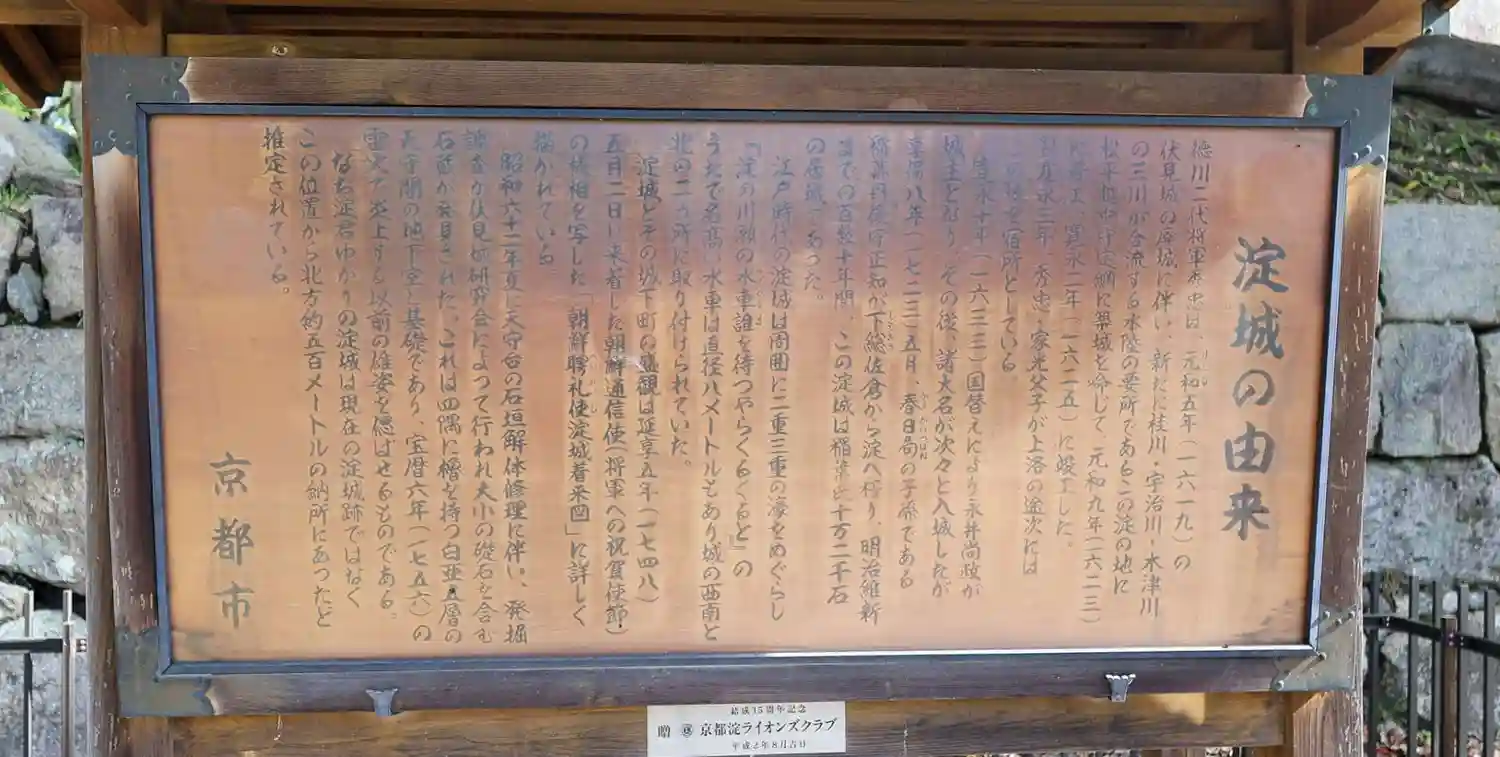 淀城の由来
徳川二代将軍秀忠は、元和五年（一六一九）の
伏見城の廃城に伴い、新たに桂川・宇治川・木津川
の三川が合流する水陸の要所であるこの淀の地に
松平越中守定綱に築城を命じて、元和九年（一六二三）
に着工、寛永二年（一六二五）に竣工した。
寛永三年、秀忠・家光父子が上洛の途次には
この城を宿所としている。
寛永十年（一六三三）国替えにより永井尚政が
城主となり、その後、諸大名が次々と入城したが
享保八年（一七二三）五月、春日局の子孫である
稲葉丹後守正知が下総佐倉から淀へ移り、明治維新
までの百数十年間、この淀城は稲葉氏十万二千石
の居城であった。
江戸時代の淀城は周囲に二重三重の濠をめぐらし
「淀の川瀬の水車誰を待つやらくるくると」の
うたで名高い水車は直径八メートルもあり城の西南と
北の二ヶ所に取り付けられていた。
淀城とその城下町の盛観は延享五年（一七四八）
五月二日に来着した朝鮮通信使（将軍への祝賀使節）
の様相を写した「朝鮮聘礼使淀城着来図」に詳しく
描かれている
昭和六十二年夏に天守台の石垣解体修理に伴い、発掘
調査が伏見城研究会によって行われ大小の礎石を含む
石蔵が発見された。これは四隅に櫓を持つ白亜五層の
天守閣の地下室と基礎であり、宝暦六年（一七五六）の
雷火で炎上する以前の雄姿を偲ばせるものである。
なお淀君ゆかりの淀城は現在の淀城跡ではなく
この位置から北方約五百メートルの納所にあったと
推定されている。
京都市
結成15周年記念
贈 京都淀ライオンズクラブ
平成2年8月吉日